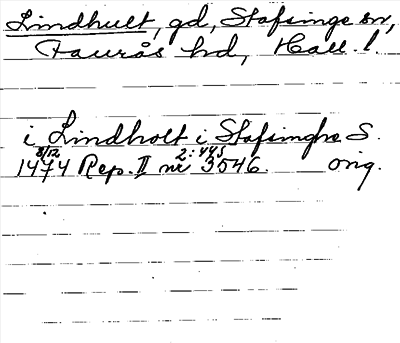 Lindhult, gd, Stafsinge sn,
Faurås hd, Hall. l.
i Lindholt i Stafsinghe S.
1474 8/12 Rep. II nr 3546. 2:445 orig.